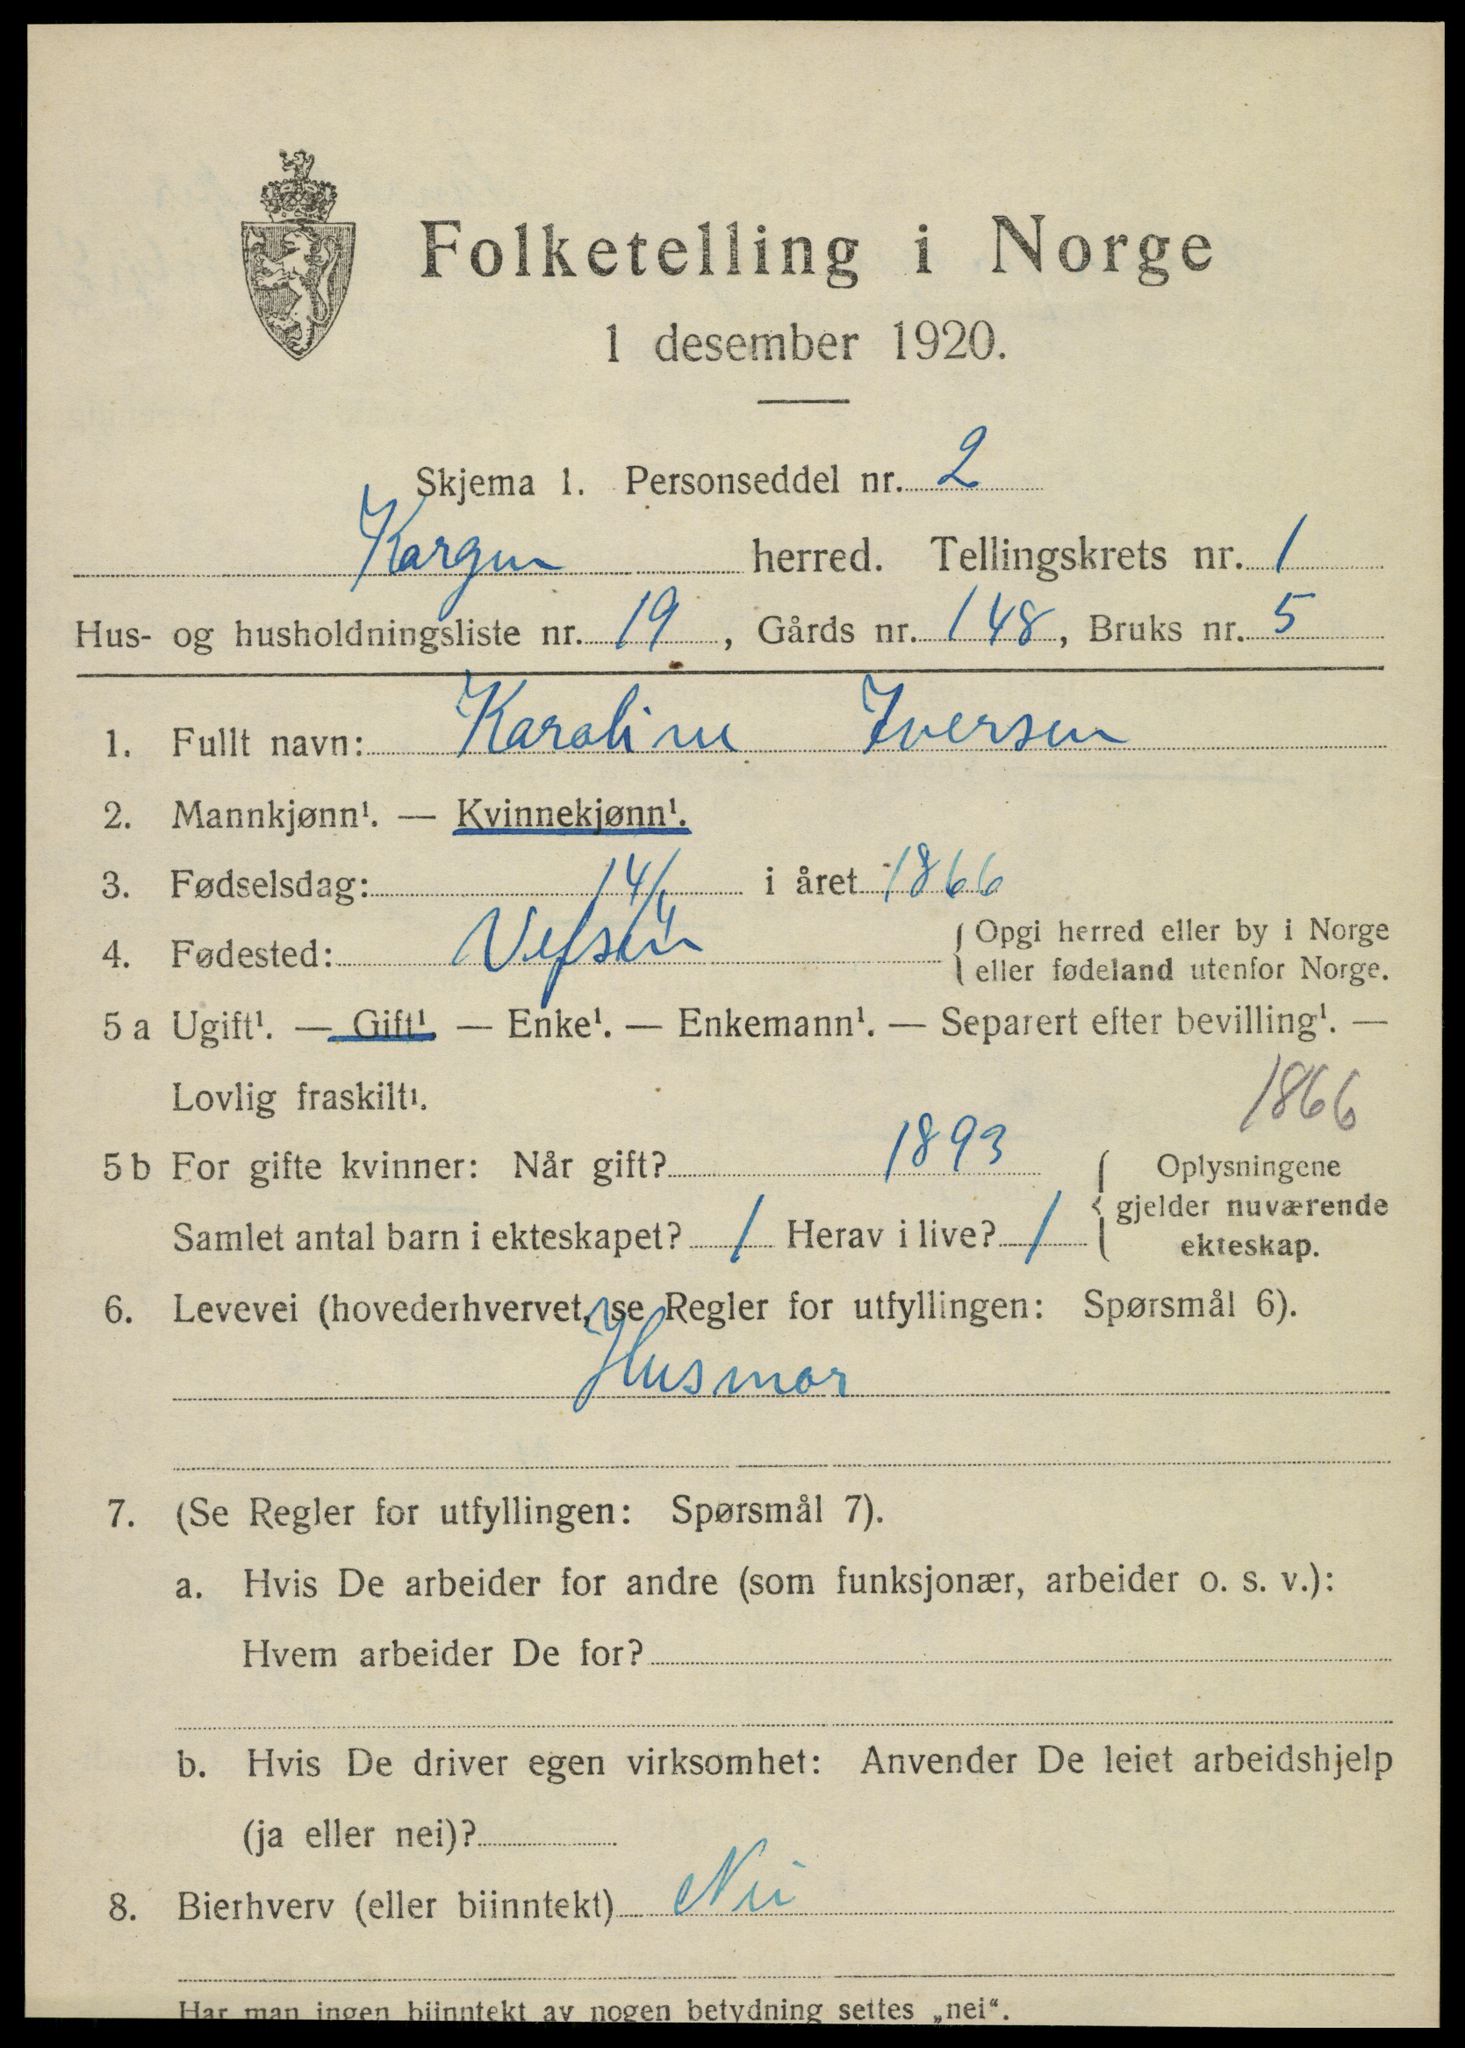 Folketelling i Norge
1 desember 1920.
Skjema 1. Personseddel nr. 2
Korgen herred. Tellingskrets nr. 1
Hus- og husholdningsliste nr. 19, Gårds nr. 148, Bruks nr. 5
1. Fullt navn: Karoline Iversen
2. Mannkjønn¹. — Kvinnekjønn¹.
3. Fødselsdag: 14/1 i året 1866
4. Fødested: Vefsen { Opgi herred eller by i Norge
eller fødeland utenfor Norge.
5 a Ugift¹. — Gift¹ — Enke¹. — Enkemann¹. — Separert efter bevilling¹. —
Lovlig fraskilt¹.
1866
5 b For gifte kvinner: Når gift? 1893
Samlet antal barn i ekteskapet? 1 Herav i live? 1
{ Oplysningene
gjelder nuværende
ekteskap.
6. Levevei (hovederhvervet, se Regler for utfyllingen: Spørsmål 6).
Husmor
7. (Se Regler for utfyllingen: Spørsmål 7).
a. Hvis De arbeider for andre (som funksjonær, arbeider o. s. v.):
Hvem arbeider De for?
b. Hvis De driver egen virksomhet: Anvender De leiet arbeidshjelp
(ja eller nei)?
8. Bierhverv (eller biinntekt) Nei
Har man ingen biinntekt av nogen betydning settes „nei“.